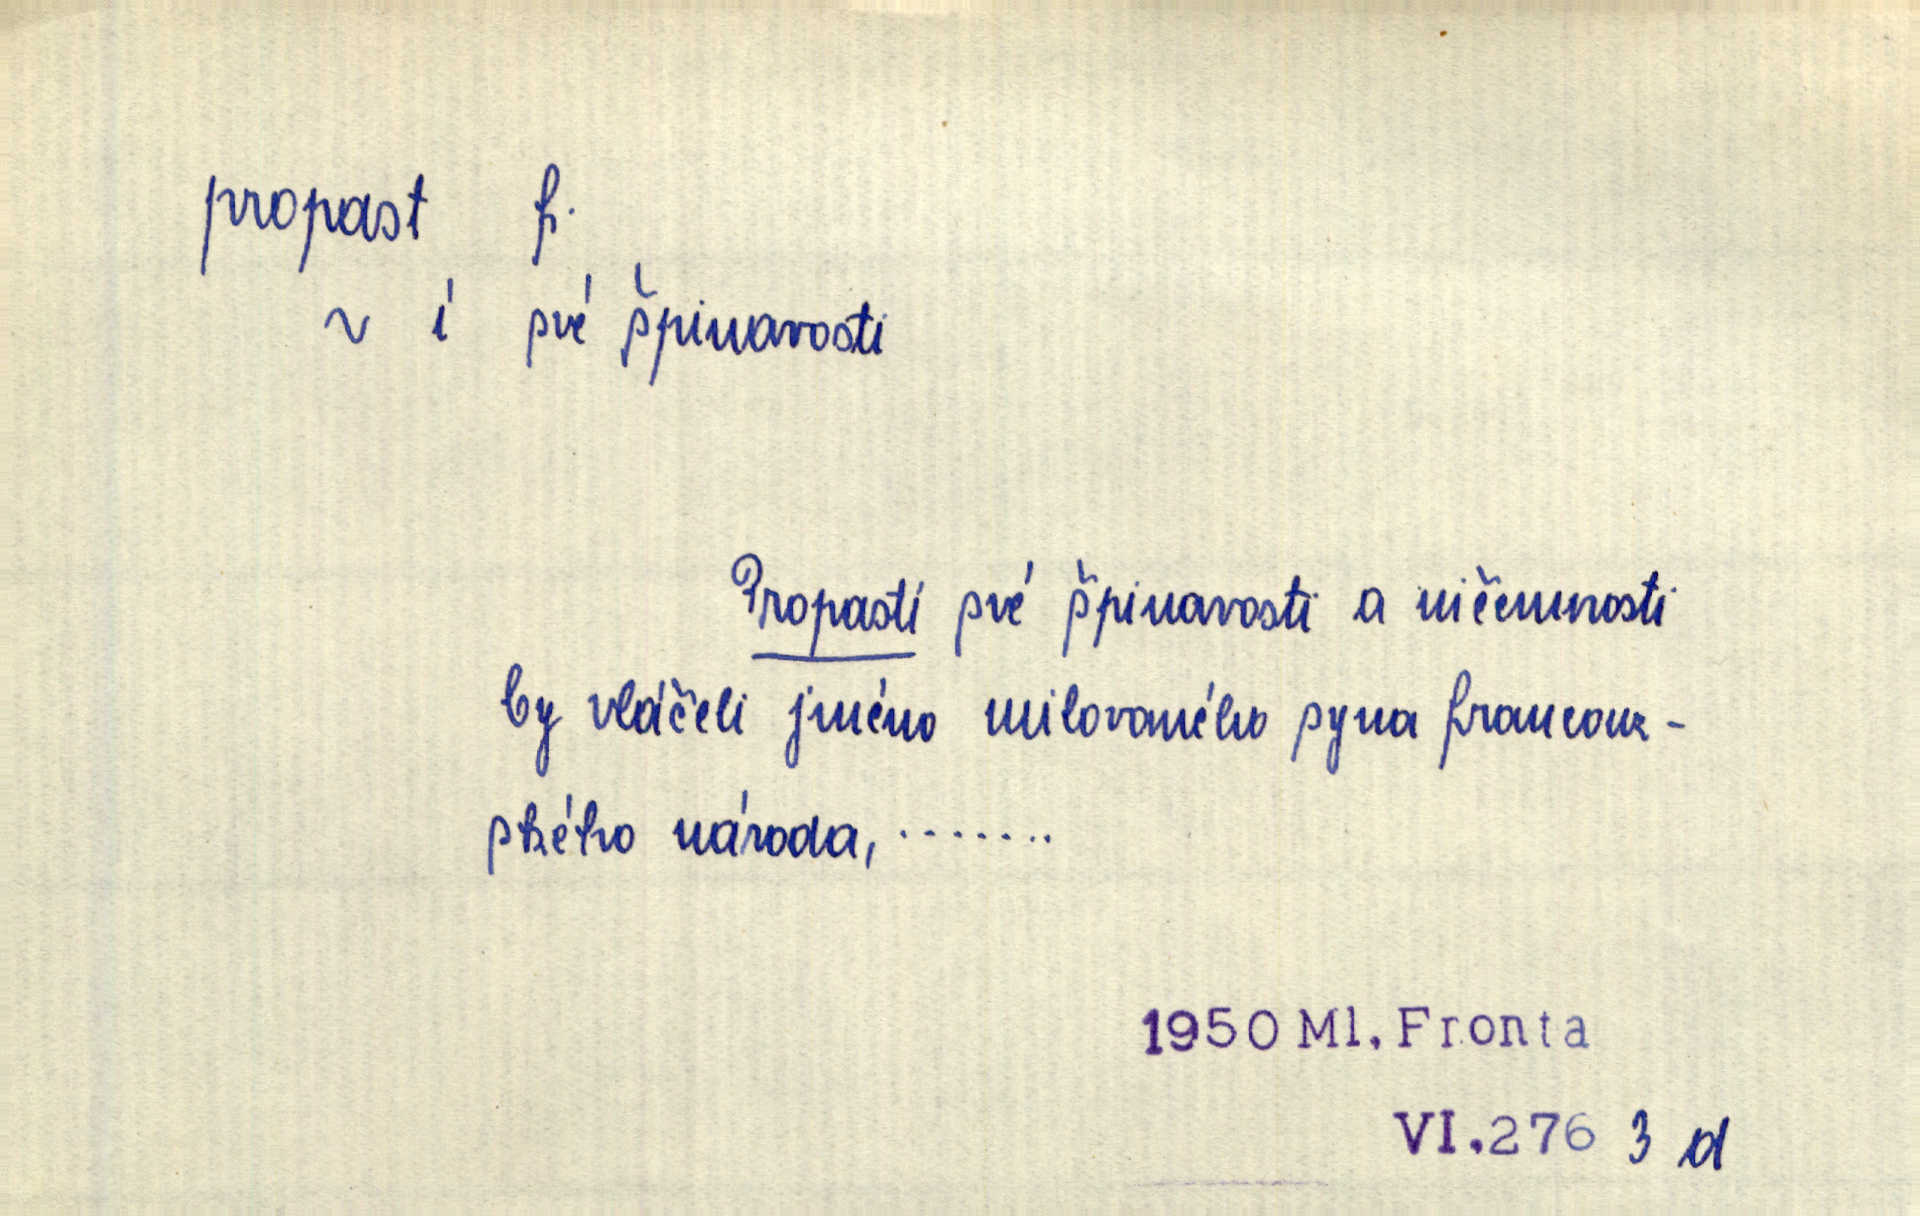 propast f.
~ í své špinavosti
Propastí své špinavosti a ničemnosti
by vláčeli jméno milovaného syna francouz-
ského národa, .......
1950 Ml. Fronta
VI.276 3 d